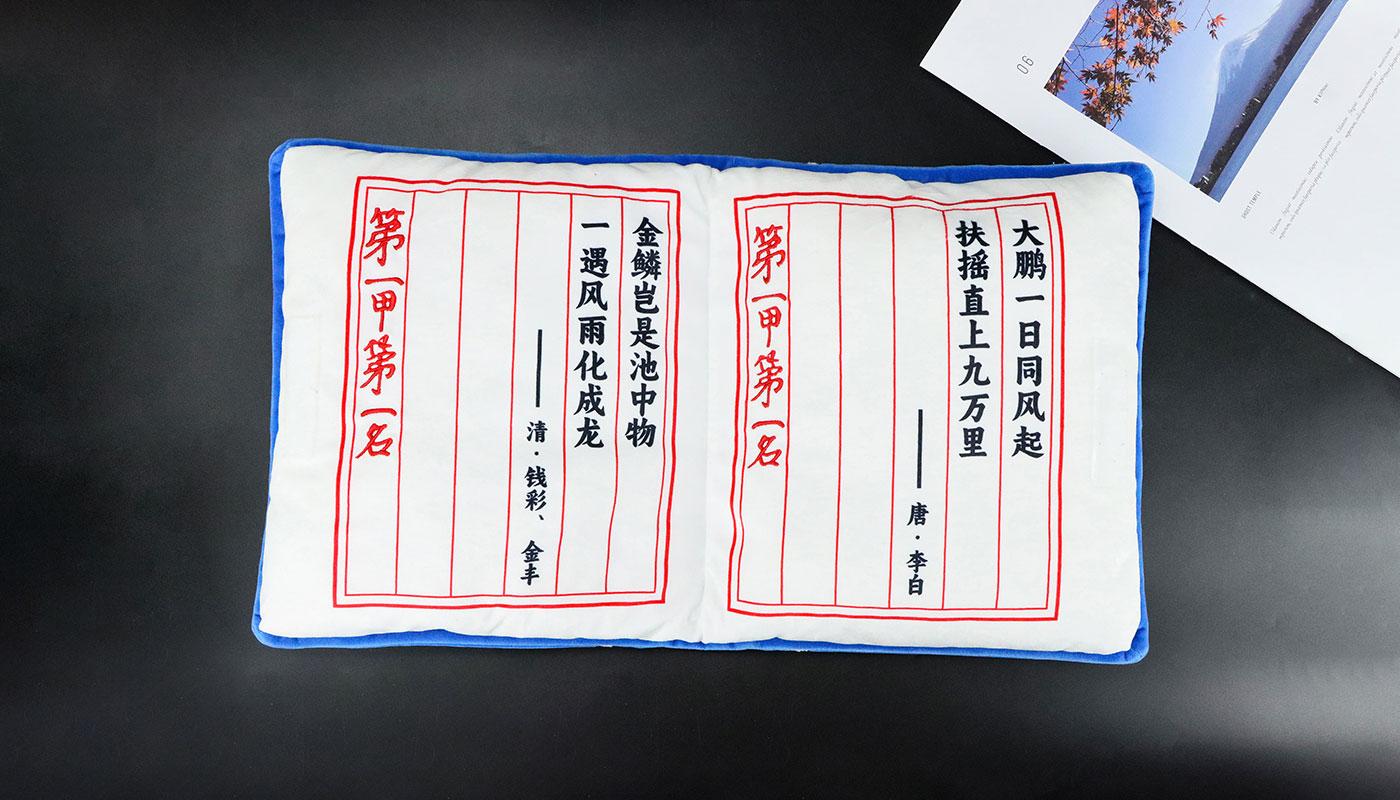 大鹏一日同风起
扶摇直上九万里
——唐·李白
第一甲第一名
金鳞岂是池中物
一遇风雨化成龙
——清·钱彩、金丰
第一甲第一名
06
BY KIPMAI
FROST TEMPLE